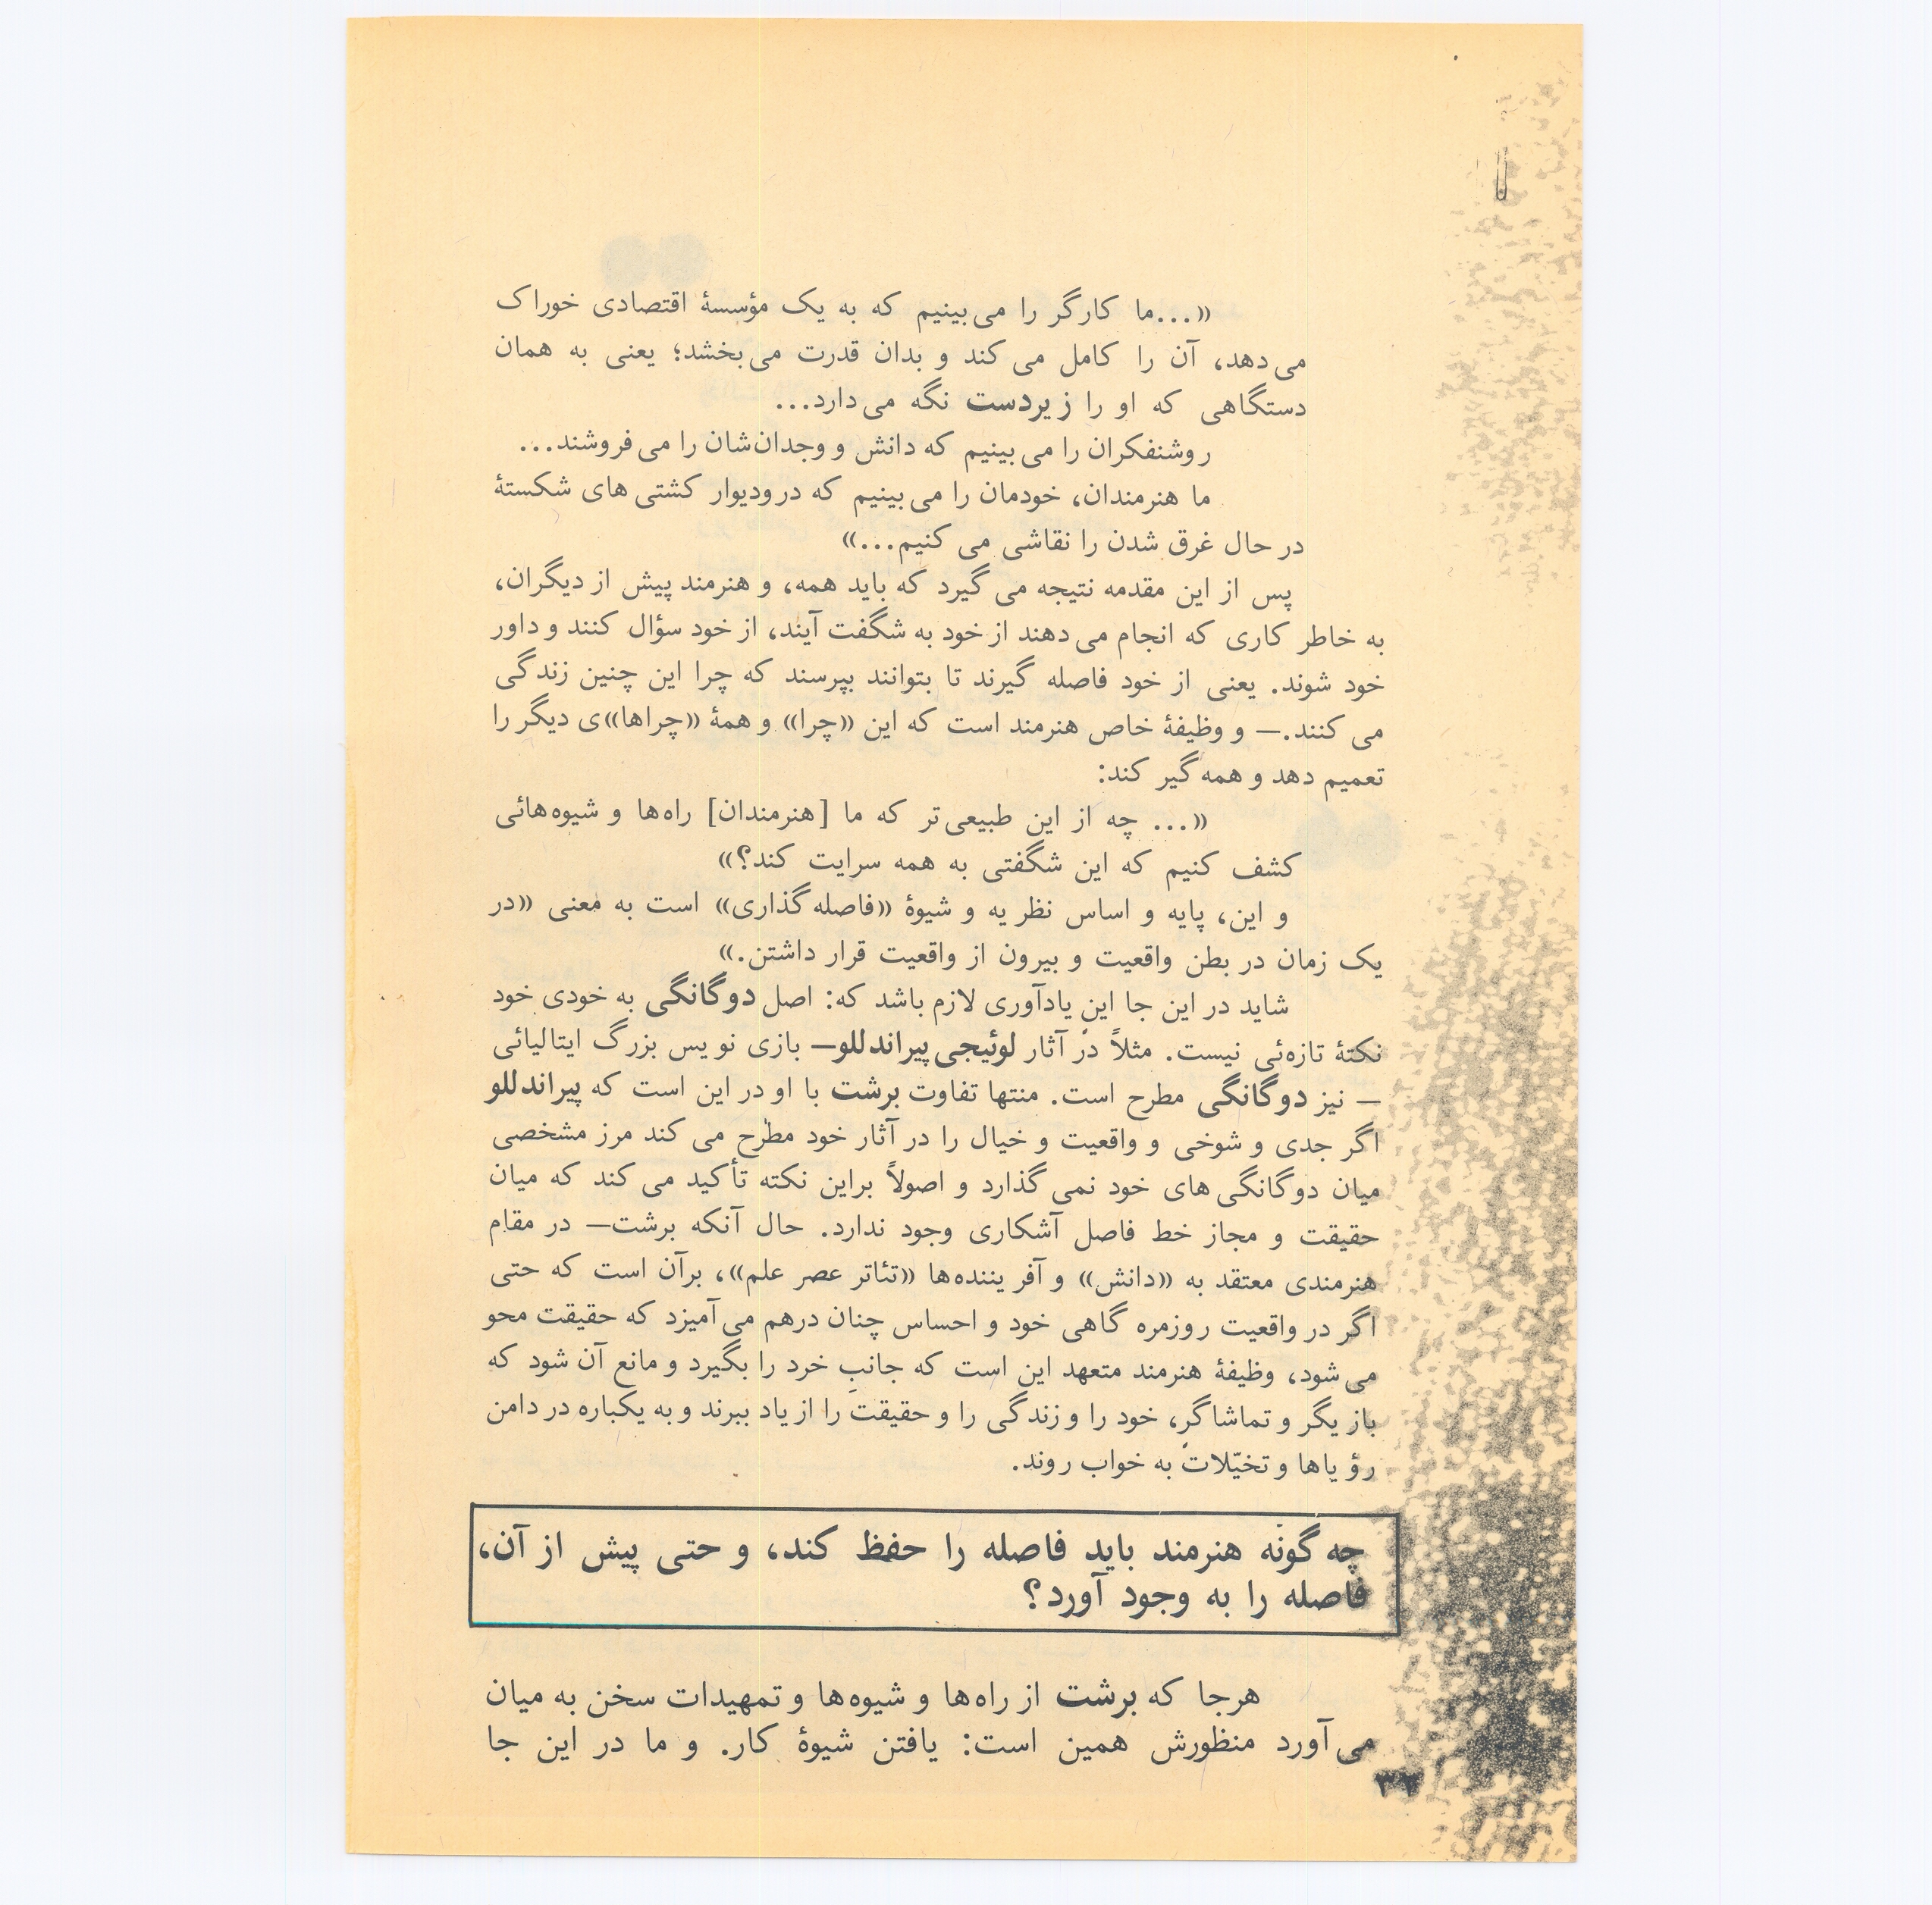 «...ما کارگر را می‌بینیم که به یک مؤسسهٔ اقتصادی خوراک
می‌دهد، آن را کامل می‌کند و بدان قدرت می‌بخشد؛ یعنی به همان
دستگاهی که او را زیردست نگه می‌دارد...
روشنفکران را می‌بینیم که دانش و وجدان‌شان را می‌فروشند...
ما هنرمندان، خودمان را می‌بینیم که درودیوار کشتی‌های شکستهٔ
در حال غرق شدن را نقاشی می‌کنیم...»
پس از این مقدمه نتیجه می‌گیرد که باید همه، و هنرمند پیش از دیگران،
به خاطر کاری که انجام می‌دهند از خود به شگفت آیند، از خود سؤال کنند و داور
خود شوند. یعنی از خود فاصله گیرند تا بتوانند بپرسند که چرا این چنین زندگی
می‌کنند.— و وظیفهٔ خاص هنرمند است که این «چرا» و همهٔ «چراها»ی دیگر را
تعمیم دهد و همه‌گیر کند:
«... چه از این طبیعی‌تر که ما [هنرمندان] راه‌ها و شیوه‌هائی
کشف کنیم که این شگفتی به همه سرایت کند؟»
و این، پایه و اساس نظریه و شیوهٔ «فاصله‌گذاری» است به معنی «در
یک زمان در بطن واقعیت و بیرون از واقعیت قرار داشتن.»
شاید در این جا این یادآوری لازم باشد که: اصل دوگانگی به خودی خود
نکتهٔ تازه‌ئی نیست. مثلاً در آثار لوئیجی پیراندللو— بازی‌نویس بزرگ ایتالیائی
— نیز دوگانگی مطرح است. منتها تفاوت برشت با او در این است که پیراندللو
اگر جدی و شوخی و واقعیت و خیال را در آثار خود مطرح می‌کند مرز مشخصی
میان دوگانگی‌های خود نمی‌گذارد و اصولاً براین نکته تأکید می‌کند که میان
حقیقت و مجاز خط فاصل آشکاری وجود ندارد. حال آنکه برشت— در مقام
هنرمندی معتقد به «دانش» و آفریننده‌ها «تئاتر عصر علم»، برآن است که حتی
اگر در واقعیت روزمره گاهی خود و احساس چنان درهم می‌آمیزد که حقیقت محو
می‌شود، وظیفهٔ هنرمند متعهد این است که جانبِ خرد را بگیرد و مانع آن شود که
بازیگر و تماشاگر، خود را و زندگی را و حقیقت را از یاد ببرند و به یکباره در دامن
رؤیاها و تخیّلات به خواب روند.
چه‌گونه هنرمند باید فاصله را حفظ کند، و حتی پیش از آن،
فاصله را به وجود آورد؟
هرجا که برشت از راه‌ها و شیوه‌ها و تمهیدات سخن به میان
می‌آورد منظورش همین است: یافتن شیوهٔ کار. و ما در این جا
۳۷